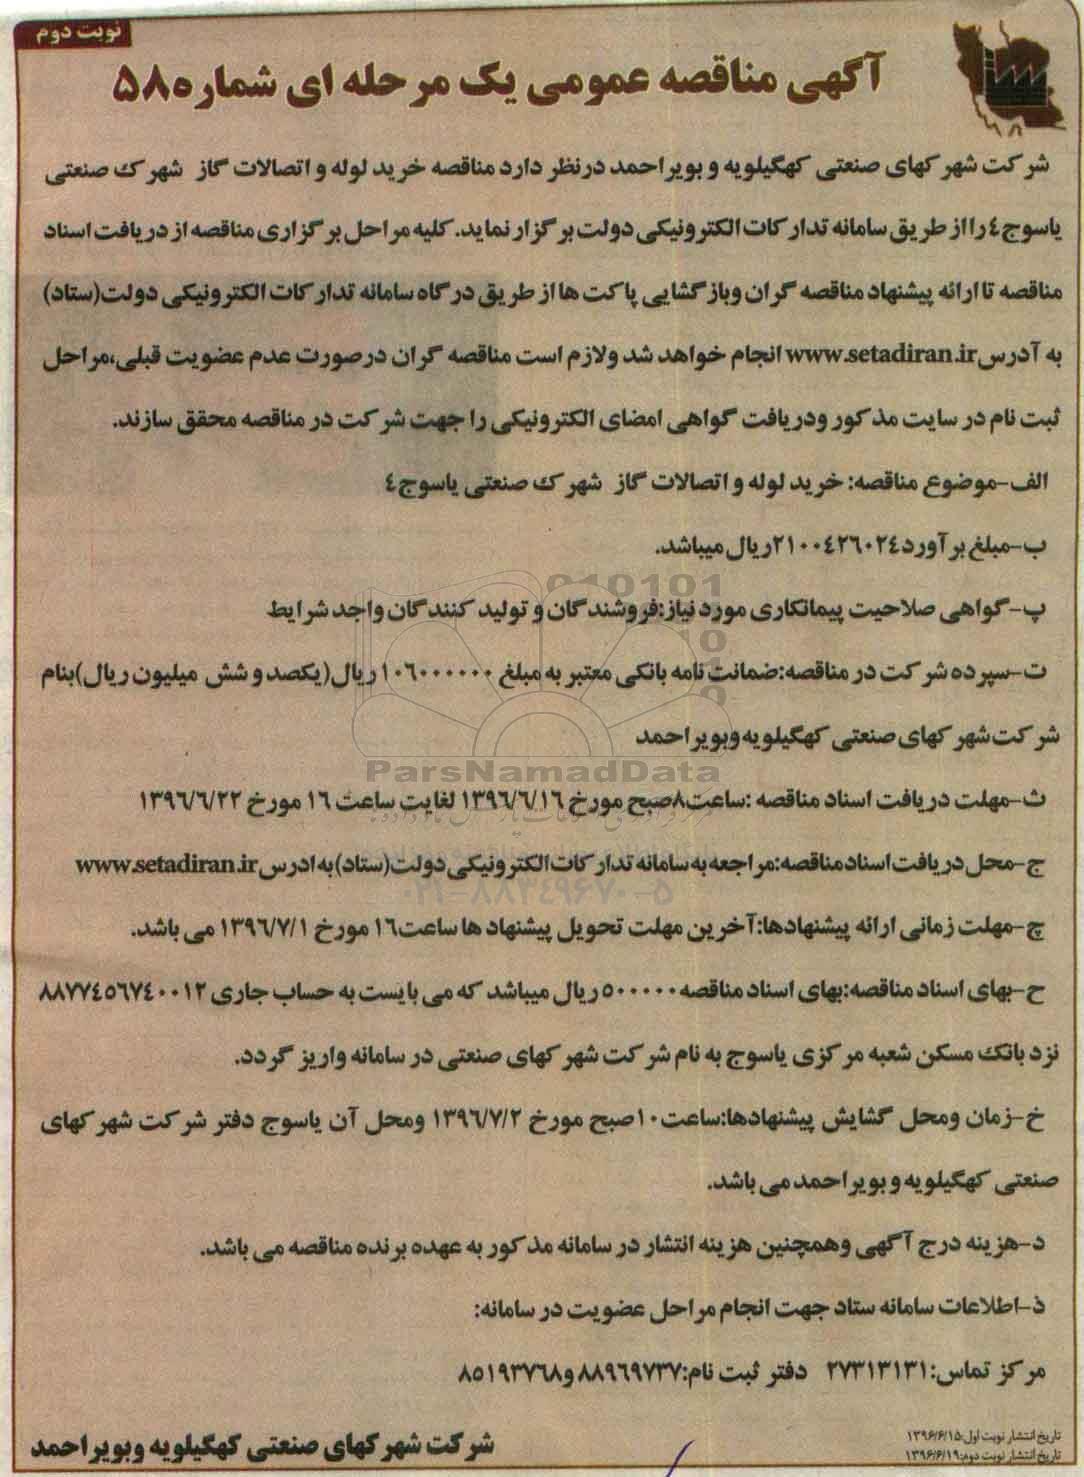 نوبت دوم
آگهی مناقصه عمومی یک مرحله ای شماره ۵۸
شرکت شهرکهای صنعتی کهگیلویه و بویراحمد درنظر دارد مناقصه خرید لوله و اتصالات گاز شهرک صنعتی
یاسوج٤ را از طریق سامانه تدارکات الکترونیکی دولت برگزار نماید. کلیه مراحل برگزاری مناقصه از دریافت اسناد
مناقصه تا ارائه پیشنهاد مناقصه گران وبازگشایی پاکت ها از طریق درگاه سامانه تدارکات الکترونیکی دولت(ستاد)
به آدرس www.setadiran.ir انجام خواهد شد ولازم است مناقصه گران درصورت عدم عضویت قبلی،مراحل
ثبت نام در سایت مذکور ودریافت گواهی امضای الکترونیکی را جهت شرکت در مناقصه محقق سازند.
الف-موضوع مناقصه: خرید لوله و اتصالات گاز شهرک صنعتی یاسوج٤
ب-مبلغ برآورد ۲۱۰۰٤۲٦۰۲٤ریال میباشد.
پ-گواهی صلاحیت پیمانکاری مورد نیاز:فروشندگان و تولید کنندگان واجد شرایط
ت-سپرده شرکت در مناقصه:ضمانت نامه بانکی معتبر به مبلغ ۱۰٦۰۰۰۰۰۰ ریال(یکصد و شش میلیون ریال)بنام
شرکت شهرکهای صنعتی کهگیلویه وبویراحمد
ParsNamadData
ث-مهلت دریافت اسناد مناقصه :ساعت۸صبح مورخ ۱۳۹٦/٦/۱٦ لغایت ساعت ۱٦ مورخ ۱۳۹٦/٦/۲۲
ج-محل دریافت اسناد مناقصه:مراجعه به سامانه تدارکات الکترونیکی دولت(ستاد)به ادرس www.setadiran.ir
۰۲۱-۸۸۳۴۹۶۷۰-۵
چ-مهلت زمانی ارائه پیشنهادها:آخرین مهلت تحویل پیشنهاد ها ساعت۱٦ مورخ ۱۳۹٦/۷/۱ می باشد.
ح-بهای اسناد مناقصه:بهای اسناد مناقصه ۵۰۰۰۰۰ ریال میباشد که می بایست به حساب جاری ۸۸۷۷٤٥٦۷٤۰۰۱۲
نزد بانک مسکن شعبه مرکزی یاسوج به نام شرکت شهرکهای صنعتی در سامانه واریز گردد.
خ-زمان ومحل گشایش پیشنهادها:ساعت ۱۰صبح مورخ ۱۳۹٦/۷/۲ ومحل آن یاسوج دفتر شرکت شهرکهای
صنعتی کهگیلویه و بویراحمد می باشد.
د-هزینه درج آگهی وهمچنین هزینه انتشار در سامانه مذکور به عهده برنده مناقصه می باشد.
ذ-اطلاعات سامانه ستاد جهت انجام مراحل عضویت در سامانه:
مرکز تماس: ۲۷۳۱۳۱۳۱ دفتر ثبت نام:۸۸۹٦۹۷۳۷ و۸۵۱۹۳۷٦۸
تاریخ انتشار نوبت اول:۱۳۹۶/۶/۱۵
تاریخ انتشار نوبت دوم:۱۳۹۶/۶/۱۹
شرکت شهرکهای صنعتی کهگیلویه وبویراحمد